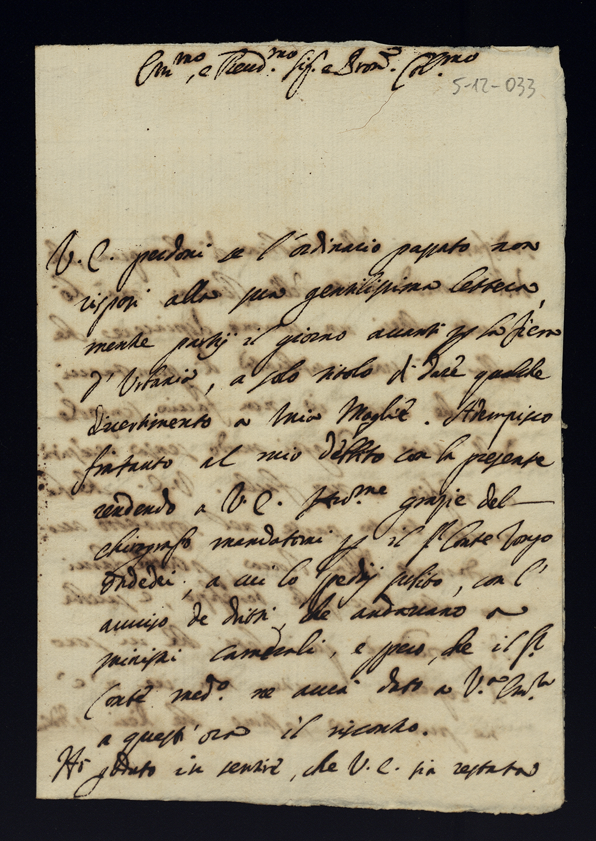 Em.mo, e Rever.mo Sig.e Pron. Col.mo
5-12-033
V. E. perdoni se l'ordinario passato non
risposi alla sua gentilissima lettera,
mentre partij il giorno avanti p la fiera
d'Urbania, a solo titolo di dare qualche
divertimento a mia Moglie. Adempisco
frattanto al mio debito con la presente
rendendo a V. E. grazie del
chirografo mandatomi p il S.r Conte
Ondedei, a cui lo spedij subito, con l'
avviso de diritti, che andavano a
ministri Camerali, e spero, che il S.r
Conte med.o ne avrà dato a V.ra Em.za
a quest'ora il riscontro.
Ho goduto in sentire, che V. E. sia restata